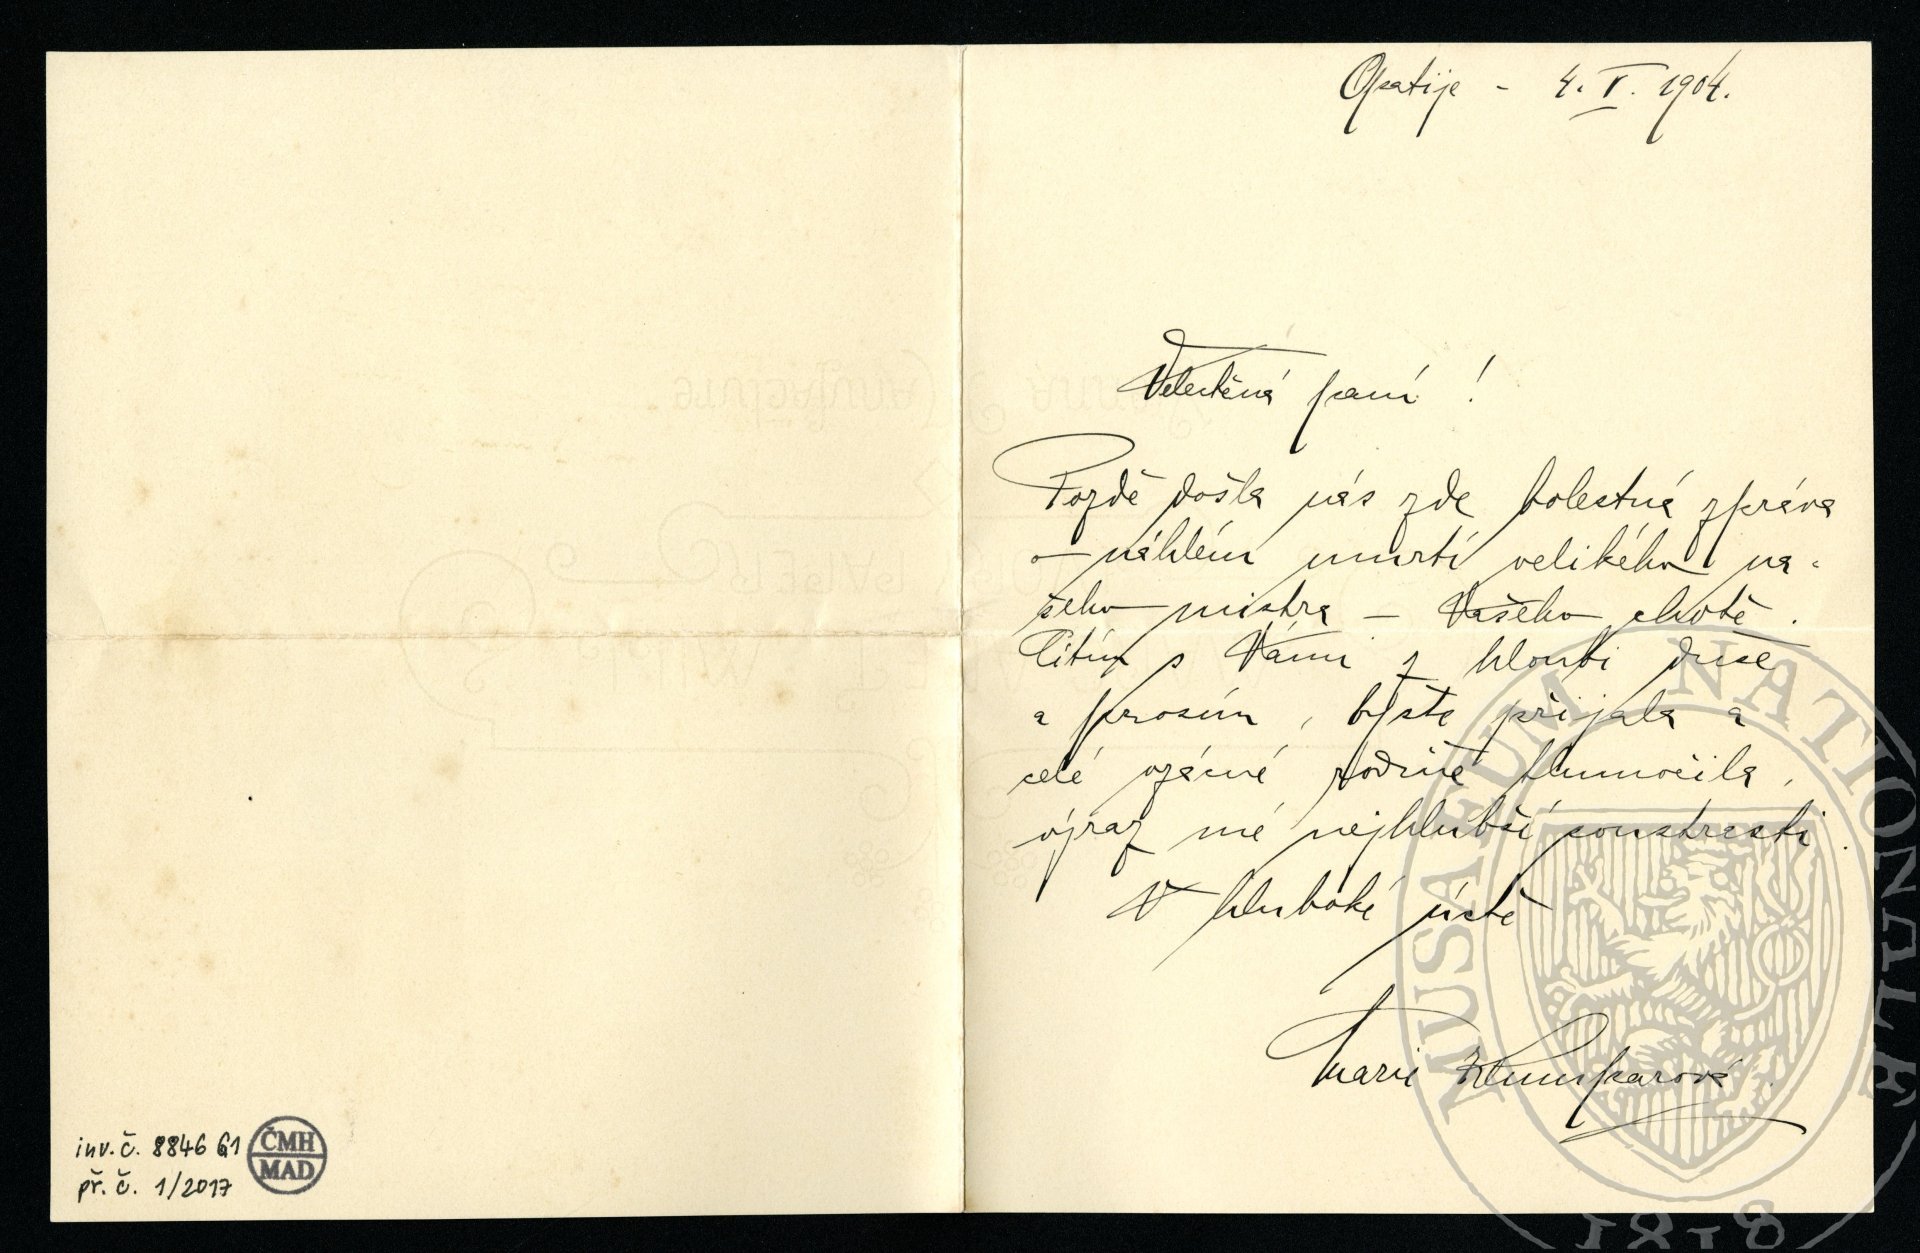 Opatije - 4. V. 1904.
Velectěná paní!
Pozdě došla nás zde bolestná zpráva
o náhlém úmrtí velikého na-
šeho mistra – Vašeho chotě.
Cítím s Vámi z hloubi duše
a prosím, byste přijala a
celé vzácné rodině tlumočila,
výraz mé nejhlubší soustrasti.
V hluboké úctě
Marie
inv. č. 8846 G1
př. č. 1/2017
ČMH
MAD
MUSAEUM NATIONALE
1818